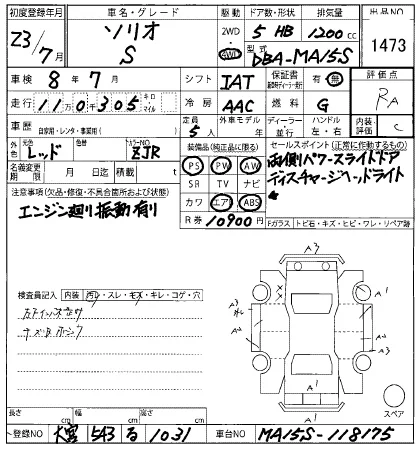 初度登録年月 車名・グレード 駆動 ドア数・形状 排気量 出品NO
Z3/7月 ソリオ S 2WD 4WD 5 HB 1200cc 1473
型式 DBA-MA15S
車検 8年7月 シフト IAT 保証書 有 無 評価点 RA
走行 11万0千305 キロ・マイル 冷房 AAC 燃料 G
車歴 自家用・レンタ・事業用( ) 定員 5人 外車モデル 年 ディーラー 並行 ハンドル 左・右 内装 C
外色 元色 レッド 色替 カラーNO ZJR 装備品(純正品に限る) セールスポイント(正常に作動するもの)
名義変更期限 月 日迄 積載 t PS PW AW 両側パワースライドドア
注意事項(欠品・修復・不具合箇所および状態) SR TV ナビ ディスチャージヘッドライト
エンジン廻り振動有り カワ エアB ABS
R券 10900円 Fガラス トビ石・キズ・ヒビ・ワレ・リペア跡
検査員記入 内装 汚レ・スレ・キズ・キレ・コゲ・穴
A3
A1
A3
A2
A2
A1
A1
A1
スペア
長さ cm 幅 cm 高さ cm
登録NO 大宮 543 る 1031 車台NO MA15S-118175